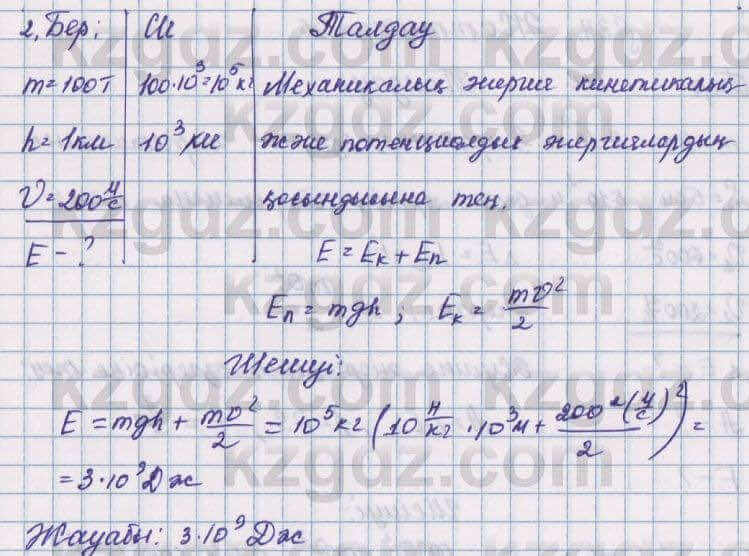 2. Бер: СИ Талдау
m = 100т 100·10³ = 10⁵ кг Механикалық энергия кинетикалық
h = 1км 10³ км және потенциалдық энергиялардың
υ = 200 м/с қосындысына тең.
E - ? E = Eк + Eп
Eп = mgh ; Eк = mυ²/2
Шешуі:
E = mgh + mυ²/2 = 10⁵ кг (10 Н/кг · 10³ м + 200² (м/с)²/2) =
= 3·10⁹ Дж
Жауабы: 3·10⁹ Дж
kzgdz.com